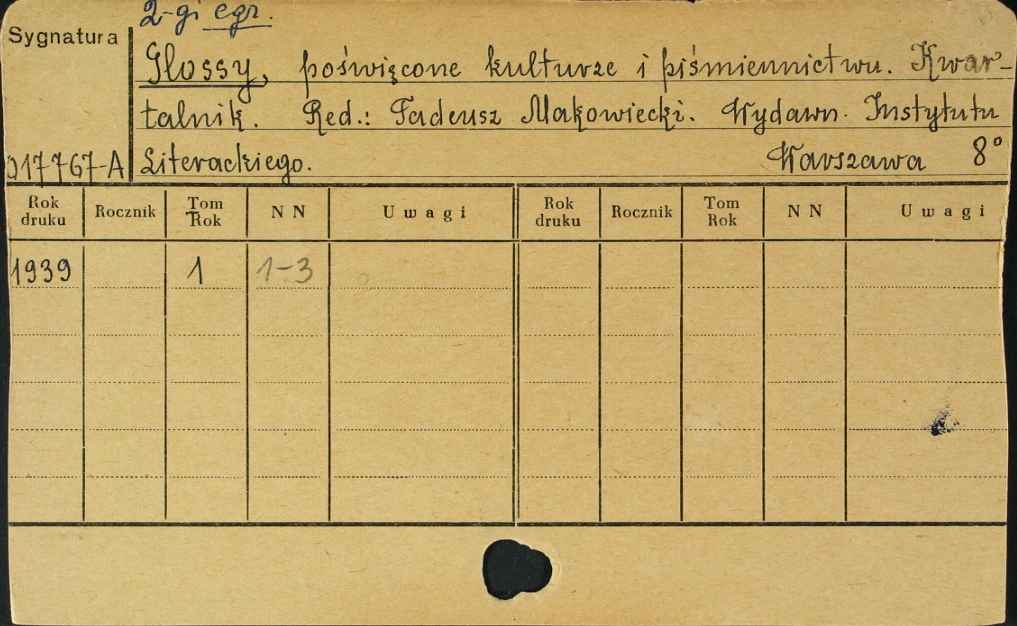 2-gi egz.
Sygnatura
Glossy, poświęcone kulturze i piśmiennictwu. Kwar-
talnik. Red.: Tadeusz Makowiecki. Wydawn. Instytutu
017767-A Literackiego. Warszawa 8°
Rok druku Rocznik Tom Rok NN Uwagi Rok druku Rocznik Tom Rok NN Uwagi
1939 1 1-3